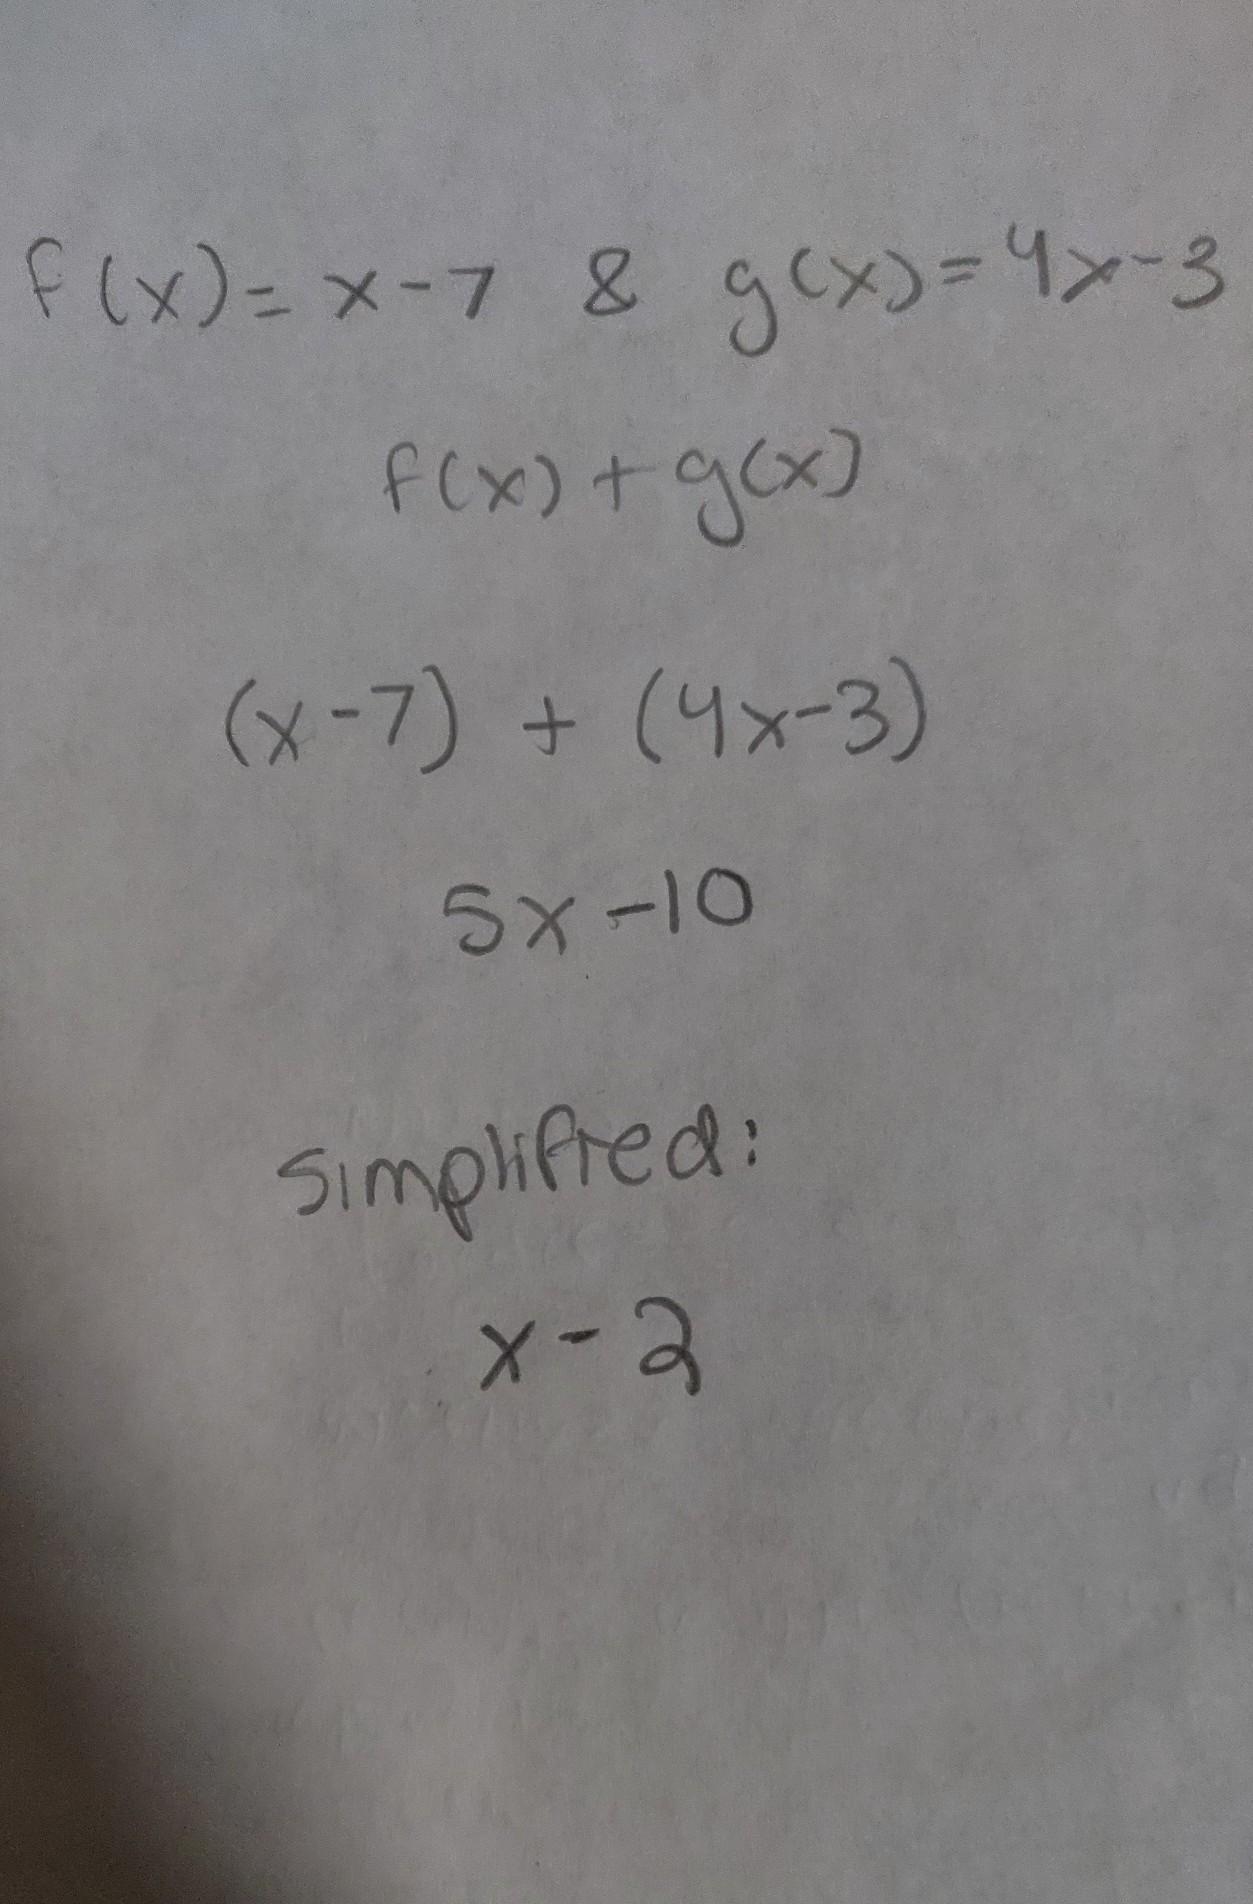 f(x)= x-7 & g(x)=4x-3
f(x) + g(x)
(x-7) + (4x-3)
5x-10
simplified:
x-2